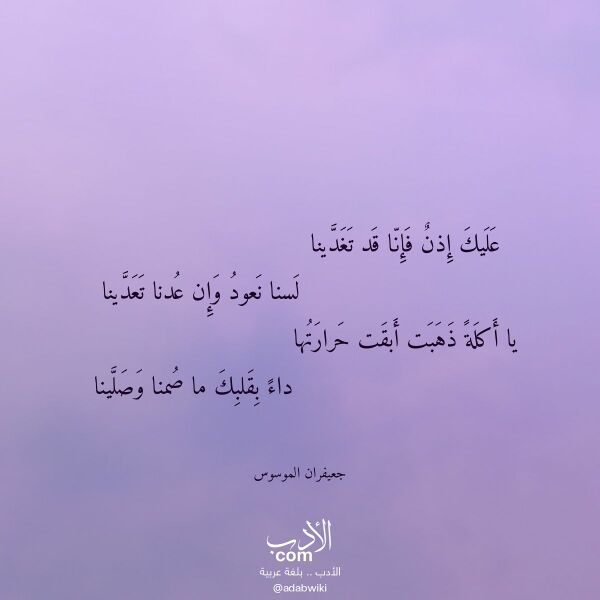 عَلَيكَ إِذنٌ فَإِنّا قَد تَغَدَّينا
لَسنا نَعودُ وَإِن عُدنا تَعَدَّينا
يا أَكلَةً ذَهَبَت أَبقَت حَرارَتُها
داءً بِقَلبِكَ ما صُمنا وَصَلَّينا
جعيفران الموسوس
الأدب
com
الأدب .. بلغة عربية
@adabwiki